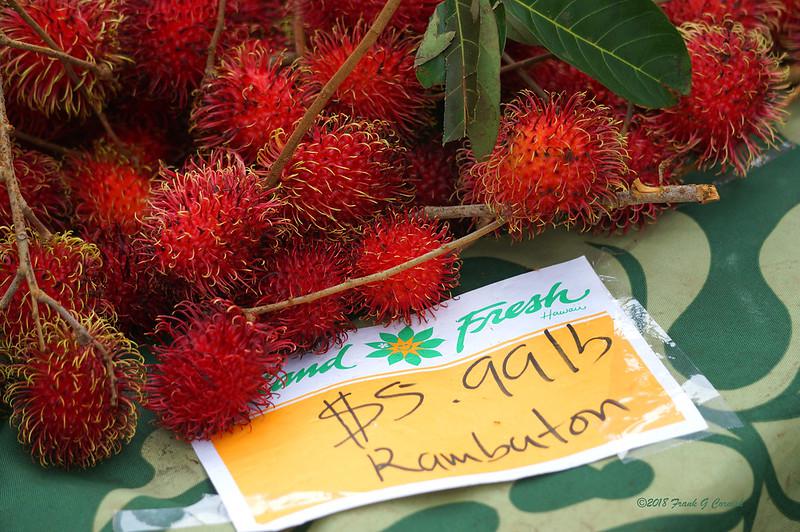 and Fresh
Hawaii
$5.99lb
Rambuton
©2018 Frank G Cornish